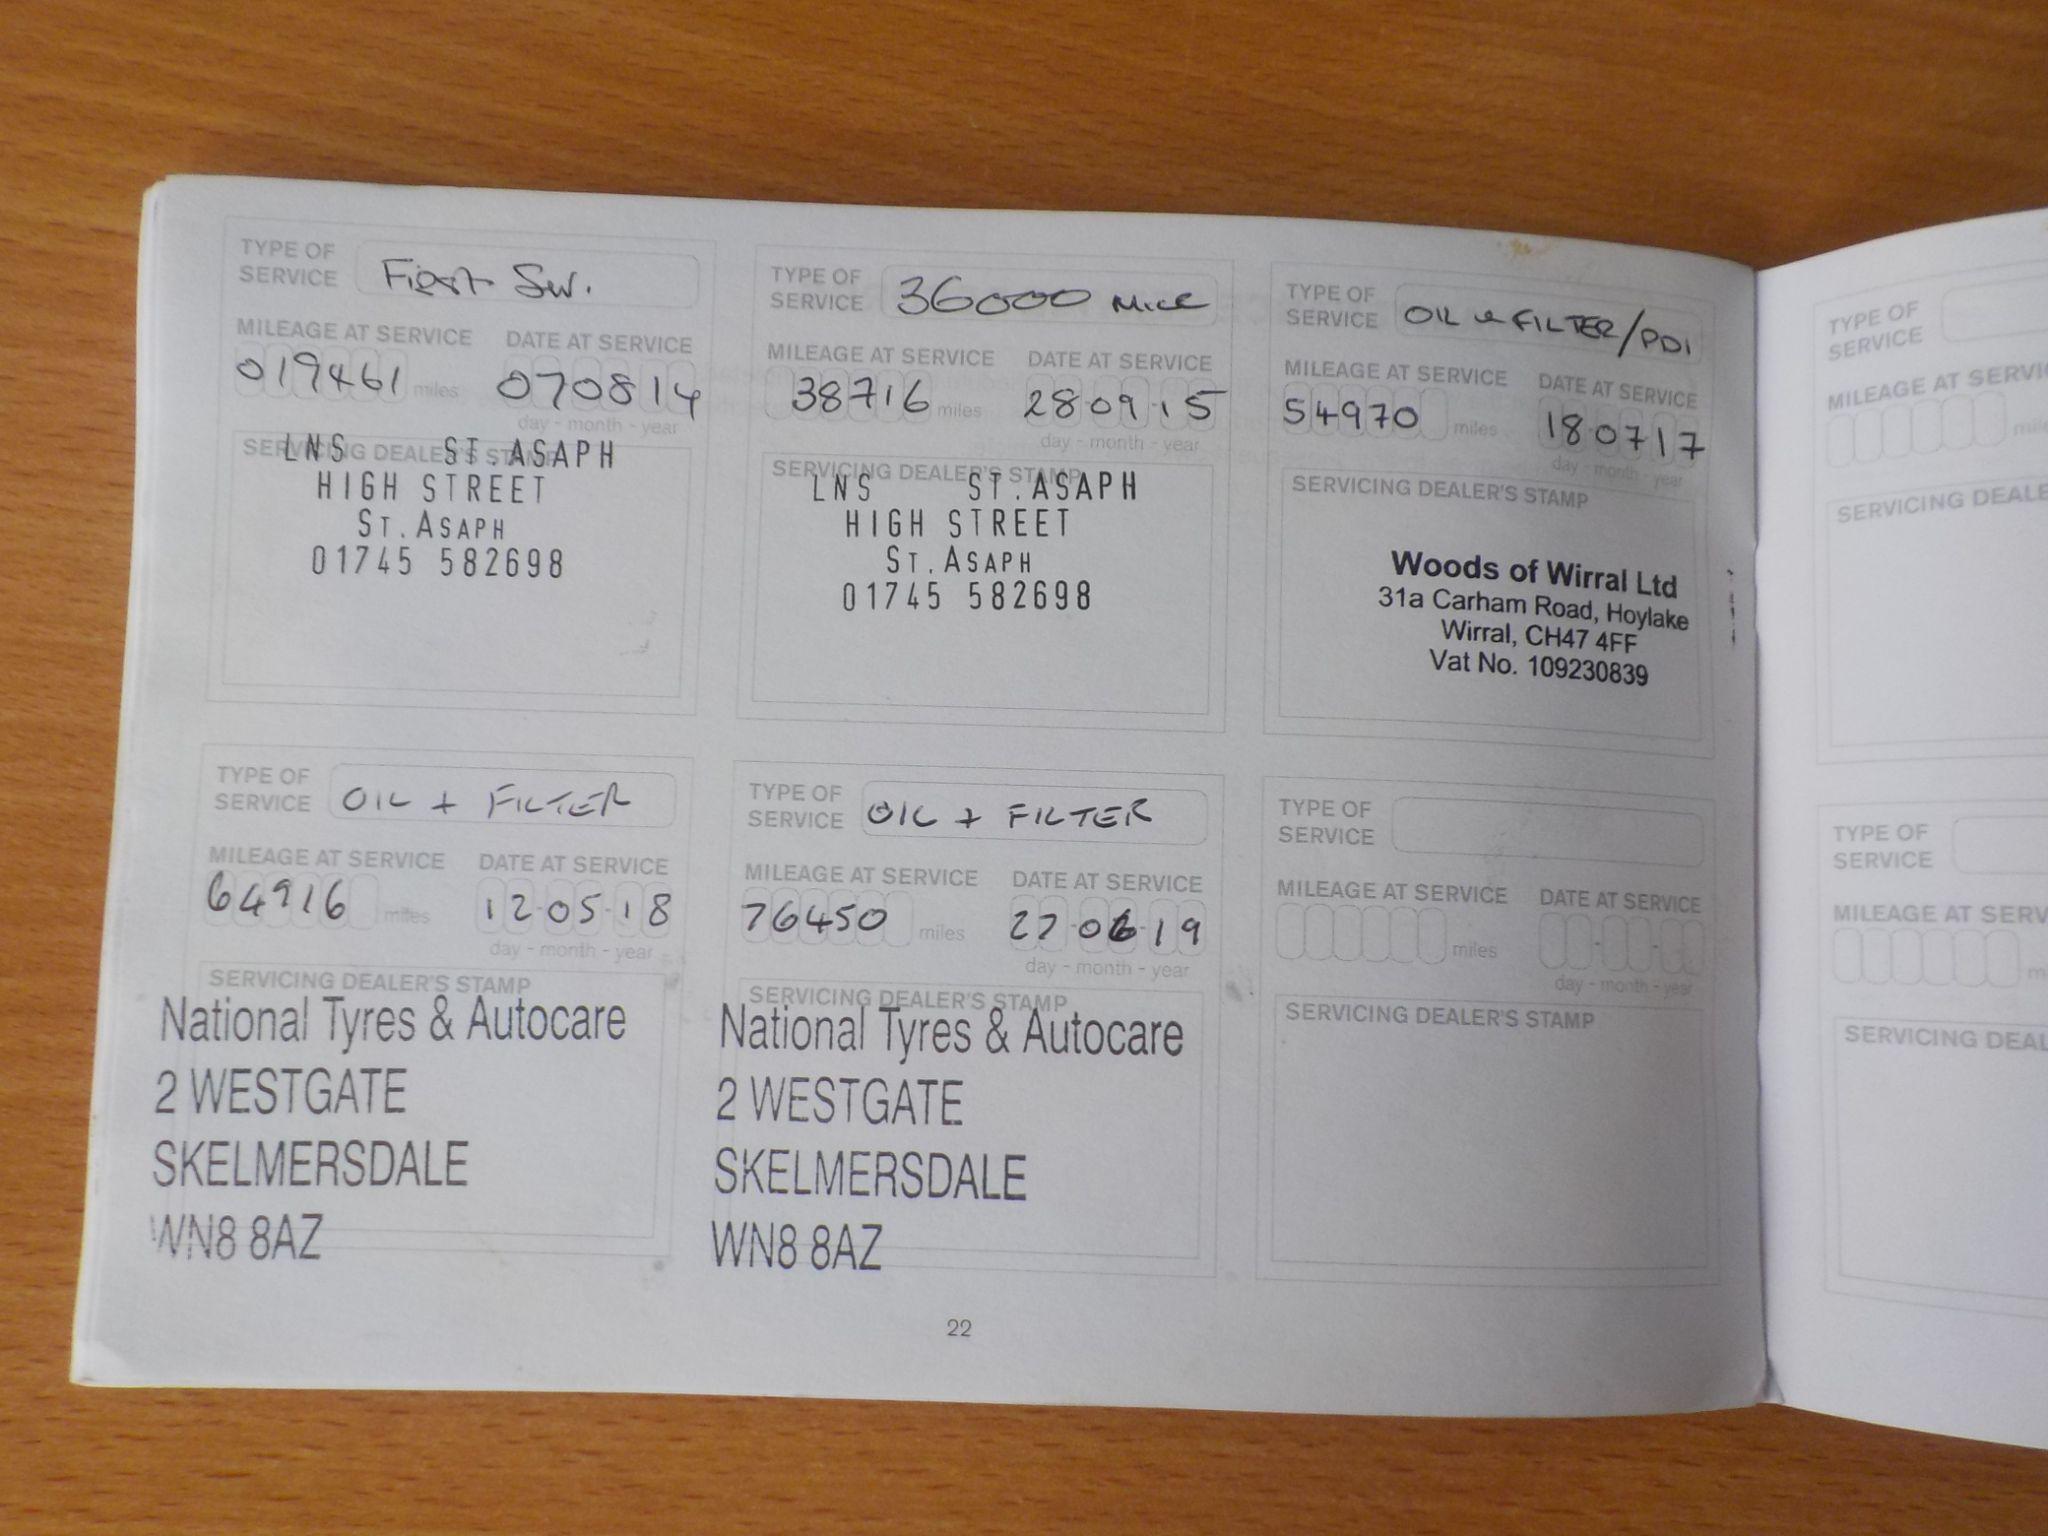 TYPE OF SERVICE First Ser.
MILEAGE AT SERVICE DATE AT SERVICE
019461 miles 070814
day - month - year
SERVICING DEALER'S STAMP
LNS ST.ASAPH
HIGH STREET
ST.ASAPH
01745 582698
TYPE OF SERVICE 36000 Mile
MILEAGE AT SERVICE DATE AT SERVICE
38716 miles 28-09-15
day - month - year
SERVICING DEALER'S STAMP
LNS ST.ASAPH
HIGH STREET
ST.ASAPH
01745 582698
TYPE OF SERVICE OIL & FILTER/PDI
MILEAGE AT SERVICE DATE AT SERVICE
54970 miles 18-07-17
day - month - year
SERVICING DEALER'S STAMP
Woods of Wirral Ltd
31a Carham Road, Hoylake
Wirral, CH47 4FF
Vat No. 109230839
TYPE OF SERVICE OIL + FILTER
MILEAGE AT SERVICE DATE AT SERVICE
64916 miles 12-05-18
day - month - year
SERVICING DEALER'S STAMP
National Tyres & Autocare
2 WESTGATE
SKELMERSDALE
WN8 8AZ
TYPE OF SERVICE OIL + FILTER
MILEAGE AT SERVICE DATE AT SERVICE
76450 miles 27-06-19
day - month - year
SERVICING DEALER'S STAMP
National Tyres & Autocare
2 WESTGATE
SKELMERSDALE
WN8 8AZ
TYPE OF SERVICE
MILEAGE AT SERVICE DATE AT SERVICE
miles
day - month - year
SERVICING DEALER'S STAMP
22
TYPE OF SERVICE
MILEAGE AT SERVIC
mile
SERVICING DEALE
TYPE OF SERVICE
MILEAGE AT SERV
m
SERVICING DEAL